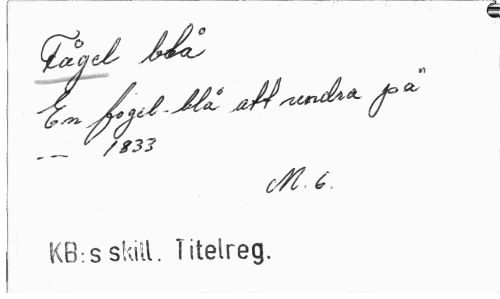 Fågel blå
En fogel blå att undra på"
-- 1833
M. 6.
KB:s skill. Titelreg.